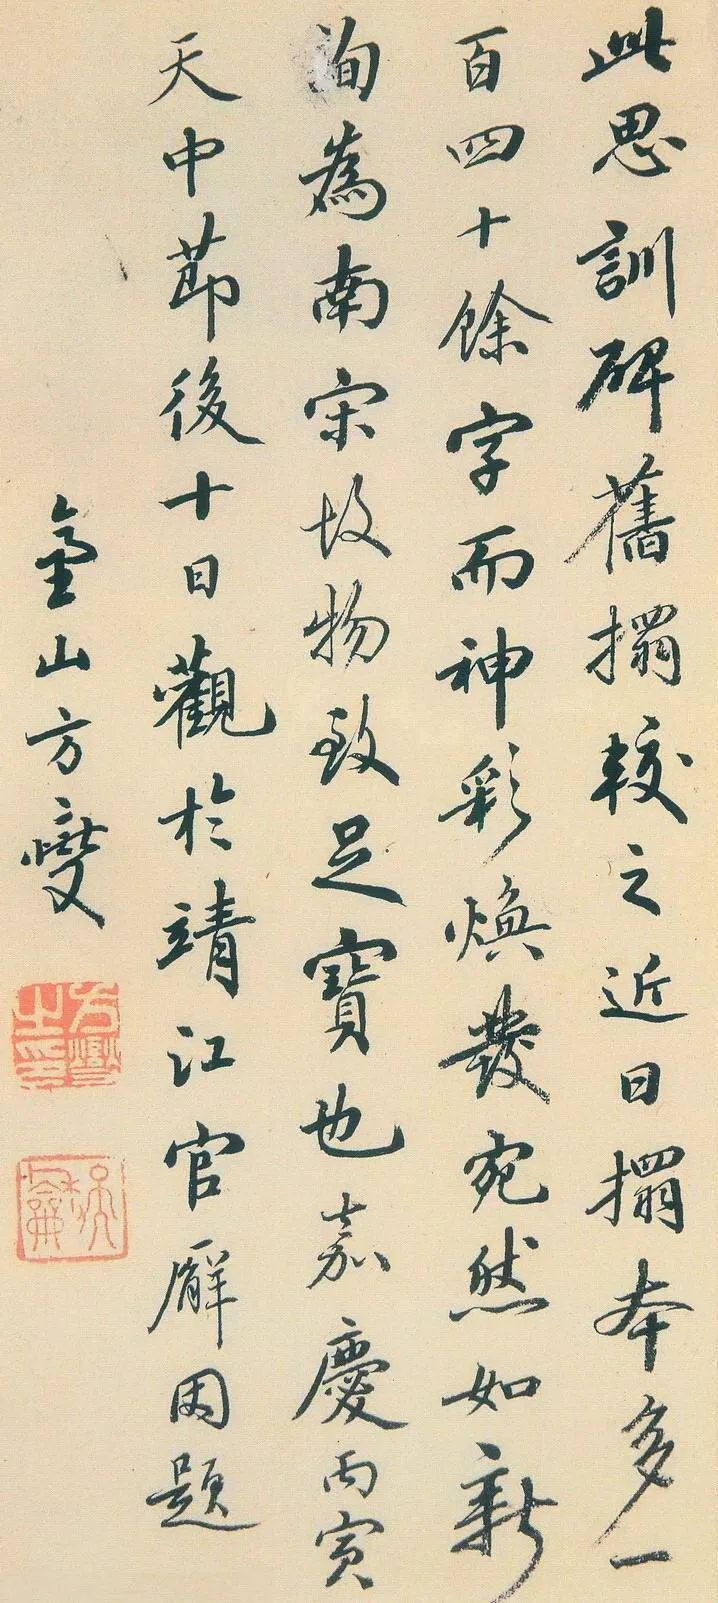 此思訓碑舊搨較之近日搨本多一
百四十餘字而神彩煥發宛然如新
洵為南宋故物致足寶也嘉慶丙寅
天中節後十日觀於靖江官廨因題
山方燮
方燮之印